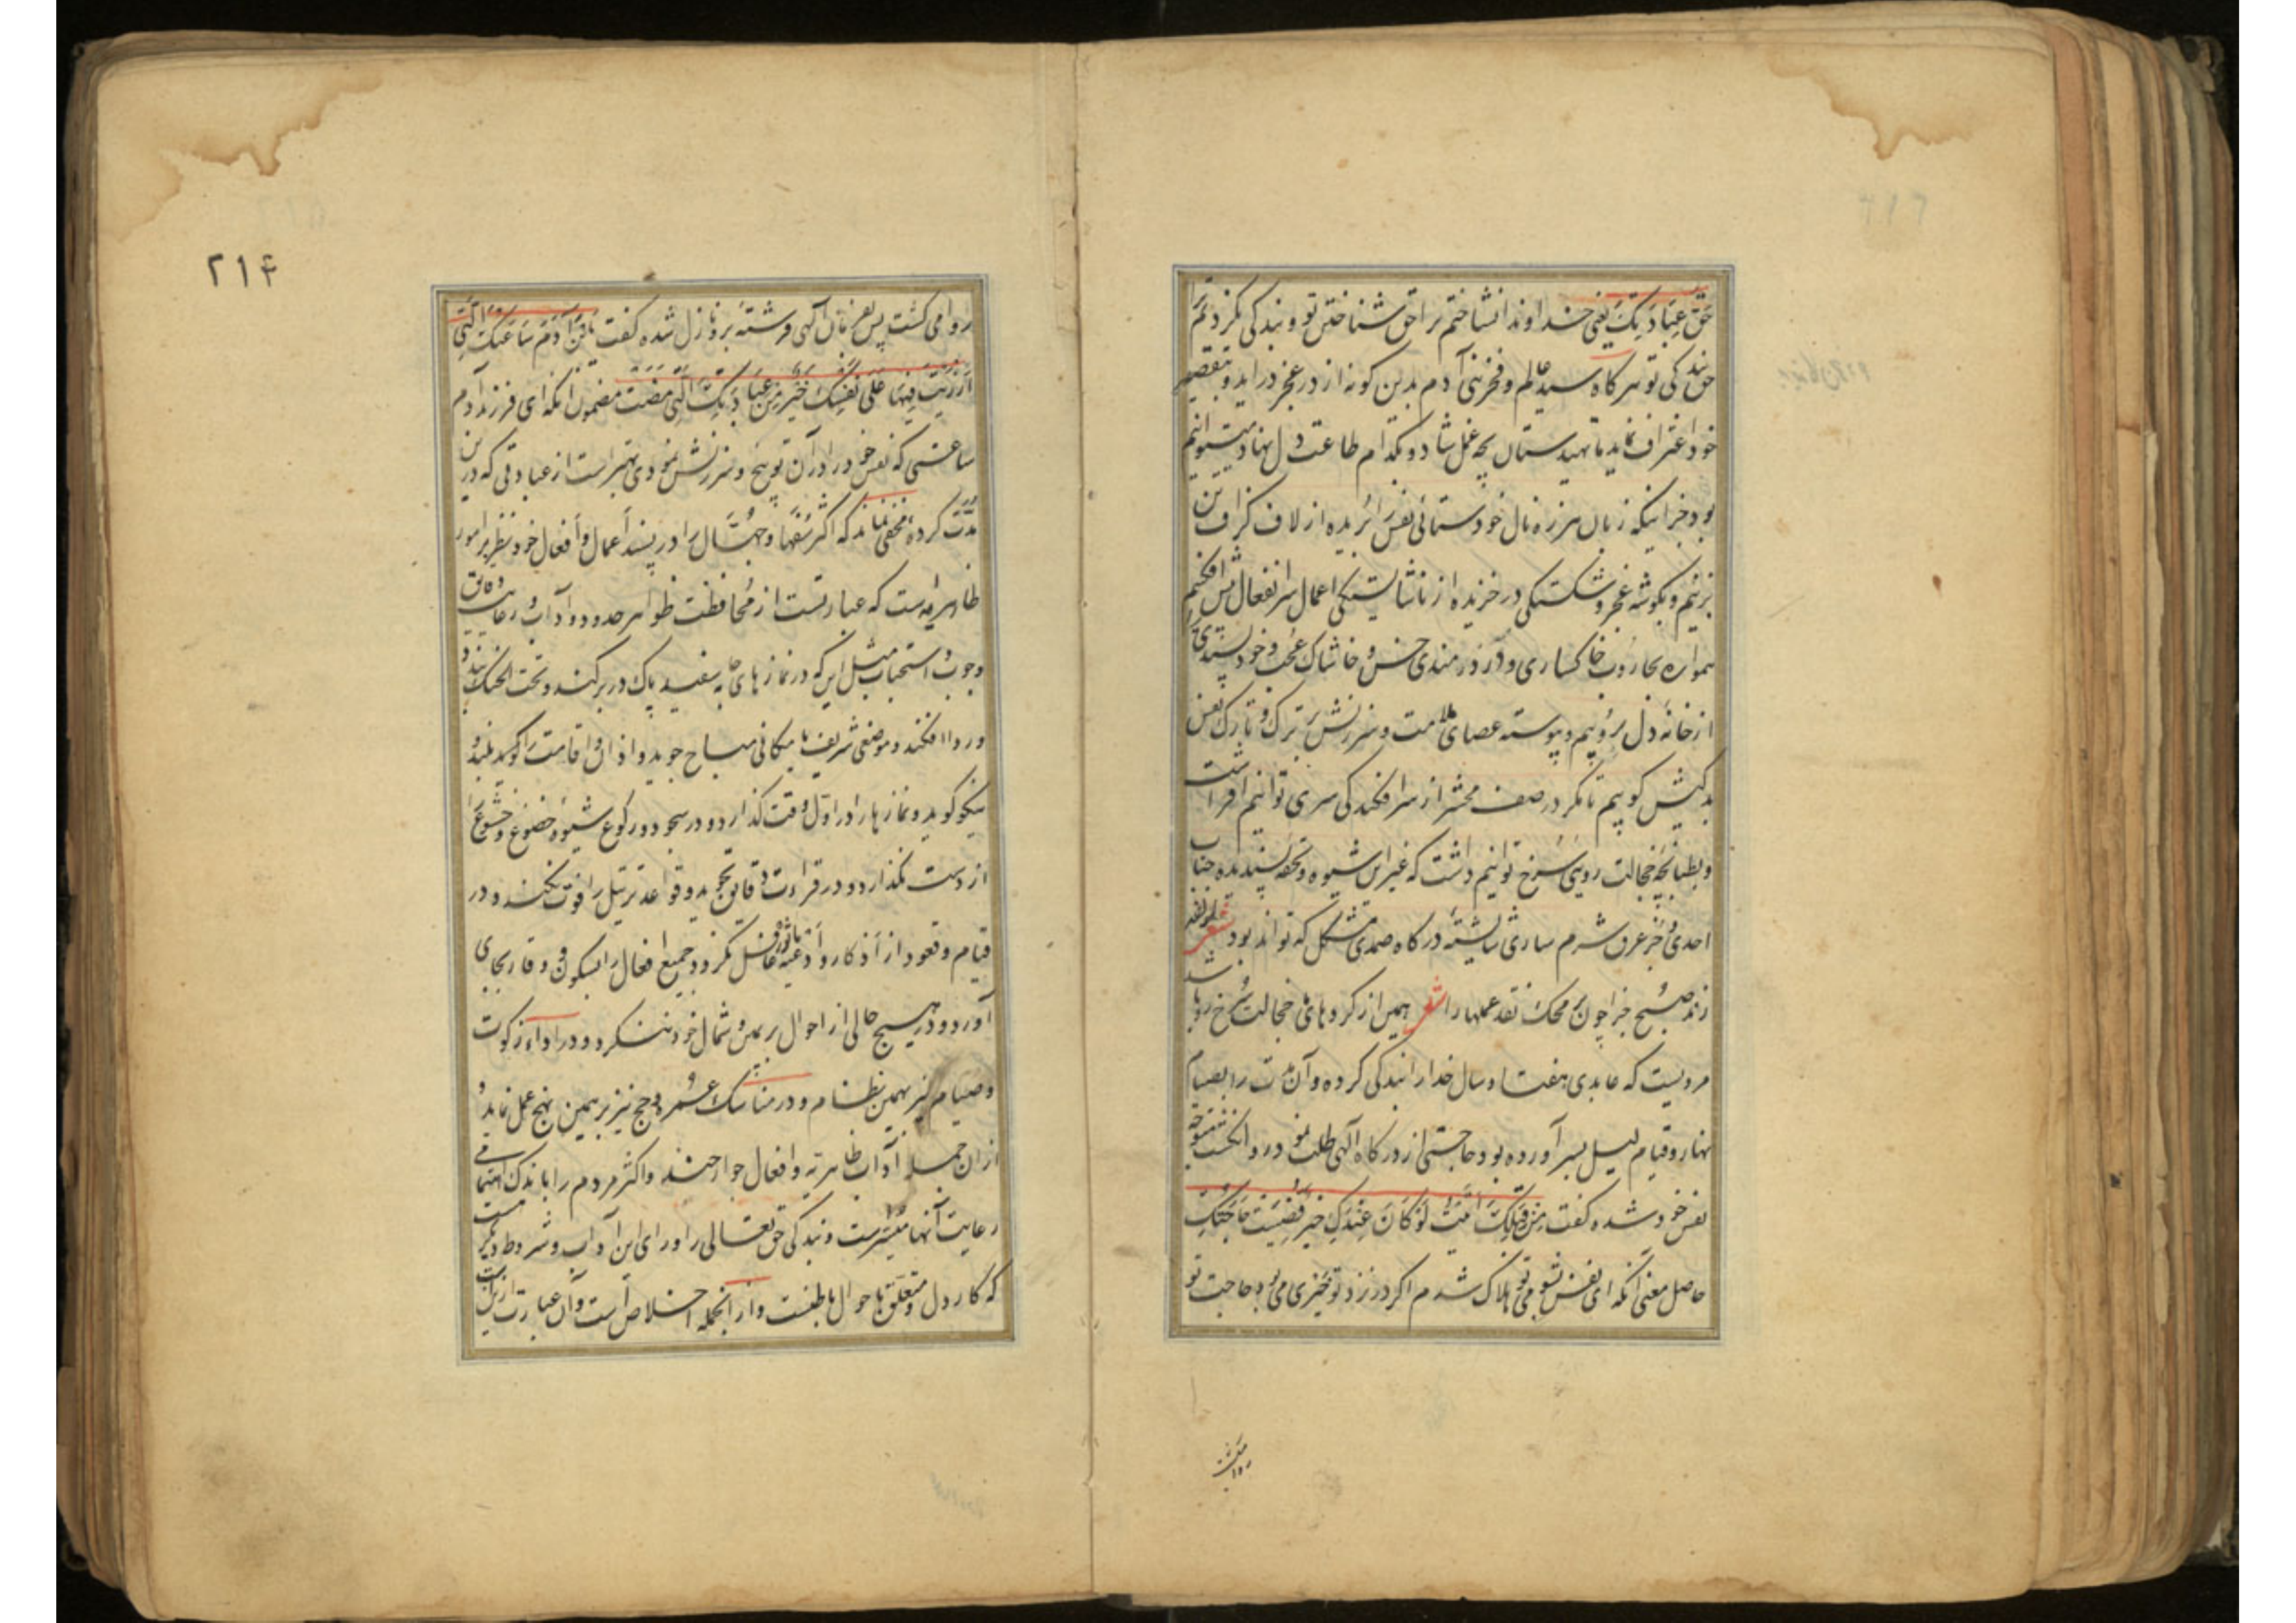 حَقَّ عِبَادَتِکَ یعنی خداوندا نشناختم ترا حق شناختن تو و بندگی نکردم ترا
حق بندگی تو هرگاه سید عالم و فخر بنی آدم بدین گونه از در عجز درآید و بتقصیر
خود اعتراف نماید ما تهیدستان بچه عمل شاد و بکدام طاعت دل نهاد میتوانیم
بود جز اینکه زبان هرزه نال خودستائی نفس را بریده از لاف گزاف تن
زنیم و بگوشه عجز و شکستگی درخزیده از ناشایستگی اعمال سر انفعال پیش افکنیم
همواره بجاروب خاکساری و دردمندی خس و خاشاک عجب و خودپسندی را
از خانه دل بروبیم و پیوسته عصای ملامت و سرزنش بر ترک و تارک نفس
بدکیش کوبیم تا مگر در صف محشر از سرافکندگی سری توانیم افراشت
و بطبانچه خجالت رویی سرخ توانیم داشت که غیر این شیوه و تحفه پسندیده جناب
احدی و جز عرق شرم نثاری شایسته درگاه صمدی مشکل که تواند بود لمؤلفه شعر
زند صبح جزا چون بر محک نقد عملها را شعر همین از کردهای خجالت سرخ رو باشد
مرویست که عابدی هفتاد سال خدا را بندگی کرده و آن مدت را بصیام
نهار و قیام لیل بسر آورده بود حاجتی از درگاه الهی طلب نمود روا نگشت متوجه
نفس خود شده گفت مِنْ قِبَلِکَ أُتِیتُ لَوْ کَانَ عِنْدَکِ خَیْرٌ قُضِیَتْ حَاجَتُکِ
حاصل معنی آنکه ای نفس بشومی تو هلاک شدم اگر در نزد تو خیری می بود حاجت تو
روا میگشت
۲۱۴
روا می گشت پس بفرمان الهی فرشته برو نازل شده گفت یَابْنَ آدَمَ سَاعَتُکَ الَّتِی
أَزْرَیْتَ فِیهَا عَلَی نَفْسِکَ خَیْرٌ مِنْ عِبَادَتِکَ الَّتِی مَضَتْ مضمون آنکه ای فرزند آدم
ساعتی که نفس خود را در آن توبیخ و سرزنش نمودی بهتر است از عبادتی که درین
مدت کرده مخفی نماند که اکثر سفها و جهال را در پسند اعمال و افعال خود نظر بر امور
ظاهریه است که عبارتست از محافظت ظواهر حدود و آداب و رعایت دقایق
وجوب و استحباب مثل این که در نماز های جامه سفید پاک در بر کنند و تحت الحنک بندند و
و ردا افکنند و موضعی شریف یا مکانی مباح جوید و اذان و اقامت را گوید بلند و
نیکو گوید و نمازها را در اول وقت گذارد و در سجود و رکوع شیوه خضوع و خشوع را
از دست نگذارد و در قراءت دقایق تجوید و قواعد ترتیل را فوت نکند و در
قیام و قعود از اذکار و ادعیه مأثوره غافل نگردد و جمیع افعال را بسکون و وقار بجای
آورد و در هیچ حالی از احوال بر یمین و شمال خود ننگرد و در اداء زکوت
و صیام نیز بهمین نظام و در مناسک عمره و حج نیز بر همین نهج عمل نماید و
ازان جمله آداب ظاهریه و افعال جوارحند و اکثر مردم را باندک اهتمامی
رعایت آنها میسرست و بندگی حق تعالی را ورای این آداب و شروط دیگر هست
که کار دل و متعلق باحوال باطنست و از آنجمله اخلاص است و آن عبارت ازین است